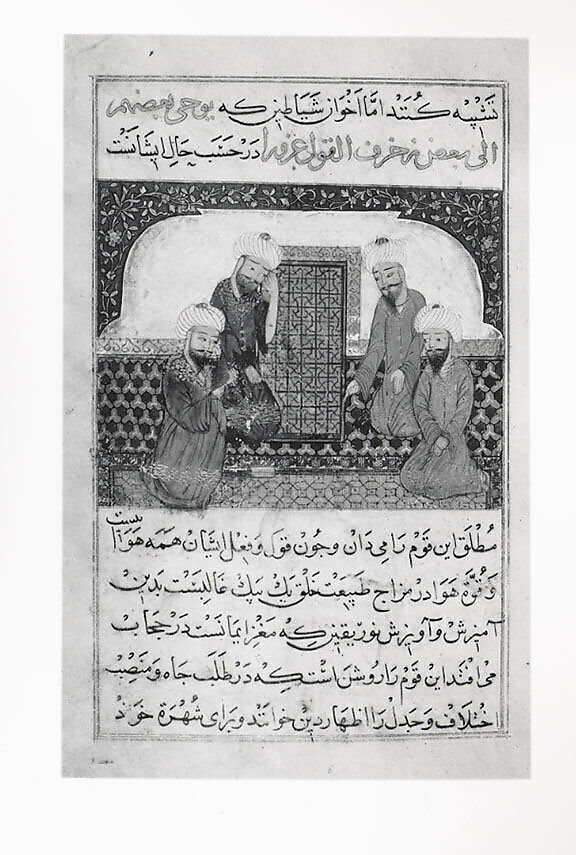 تشبیه کنند اما اخوان شیاطین که یوحی بعضهم
الی بعض زخرف القول غرورا در حسب حال ایشانست
مطلق این قوم را می دان و چون قول و فعل ایشان همه هوا است
و قوّة هوا در مزاج طبیعت خلق یک بیک غالبست بدین
آمیزش و آویزش نور یقین که مغز ایمانست در حجاب
می افتد این قوم را روشن است که در طلب جاه و منصب
اختلاف و جدل را اظهار دین خوانند و برای شهرة خوذ